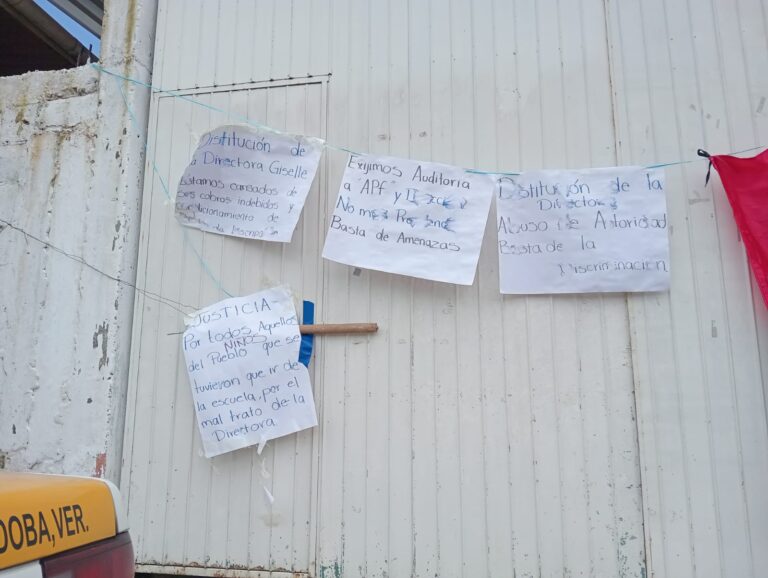 Distitución de
la Directora Giselle
Estamos cansados de
sus cobros indebidos y
condicionamiento de
Exijimos Auditoria
a "APf" y
No mas
Basta de Amenazas
Distitución de la
Directora
Abuso de Autoridad
Basta de la
Discriminación
JUSTICIA-
Por todos Aquellos
NIÑOS
del Pueblo que se
tuvieron que ir de
la escuela, por el
mal trato de la
Directora.
DOBA, VER.